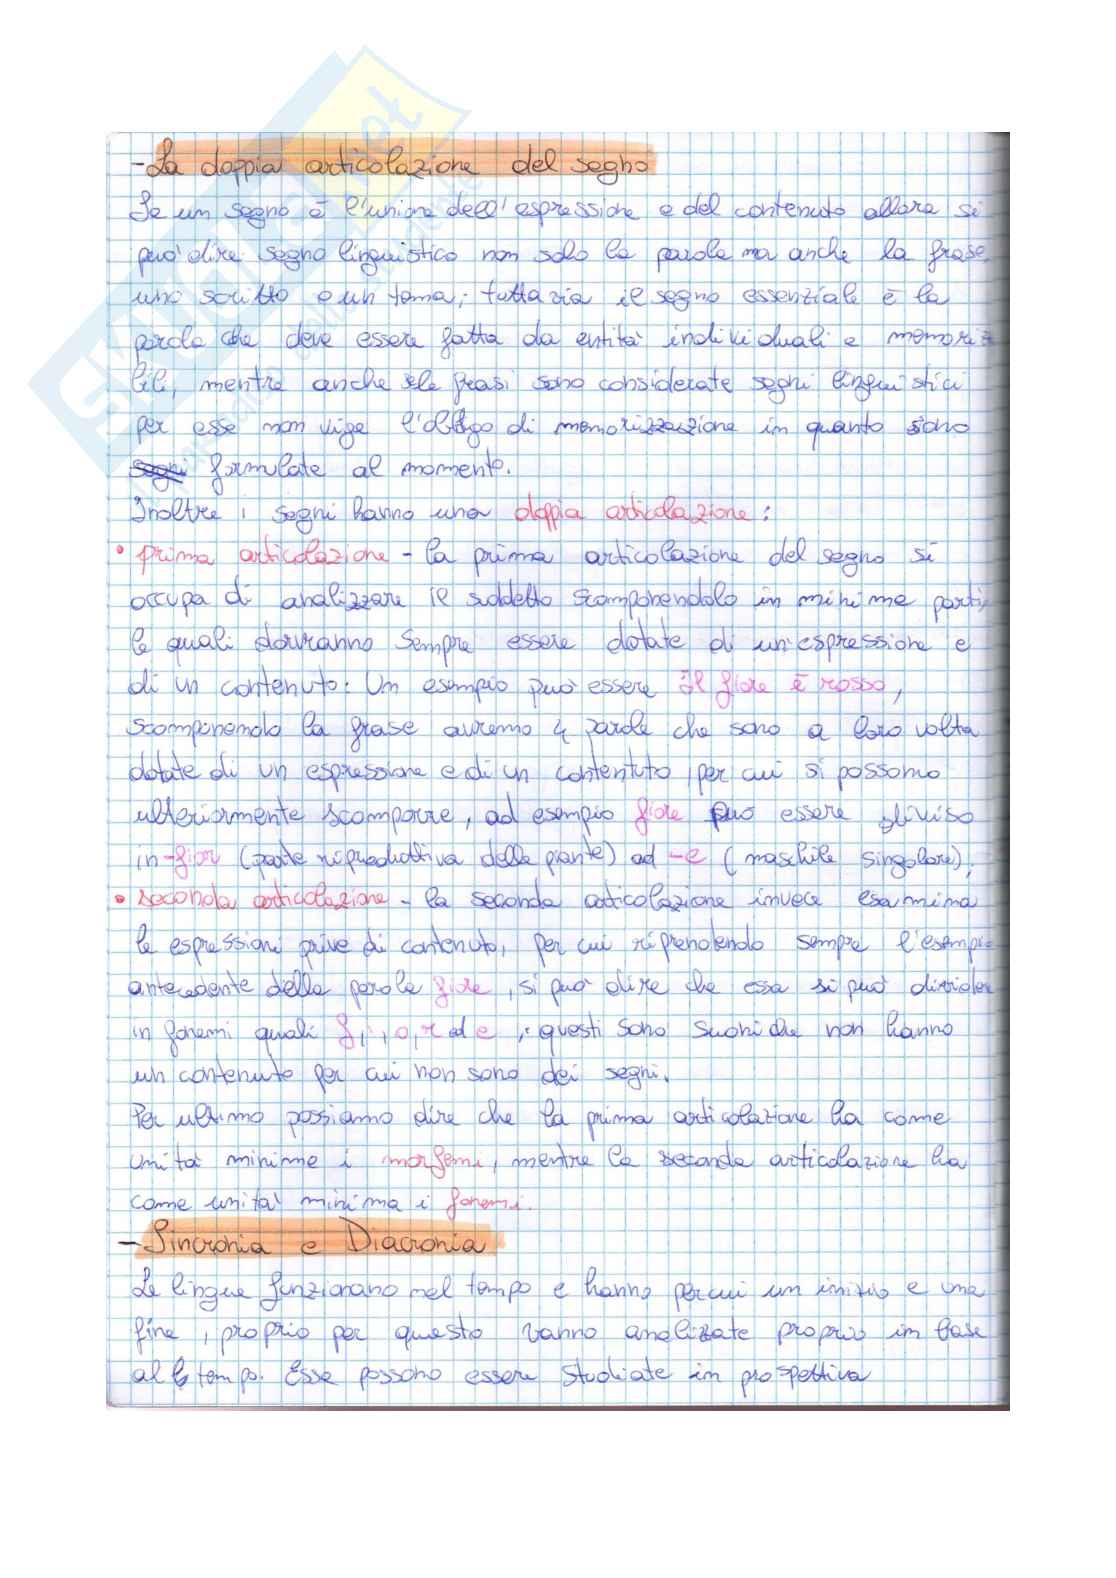 - La doppia articolazione del segno
Se un segno è l'unione dell'espressione e del contenuto allora si
può dire segno linguistico non solo la parola ma anche la frase
uno scritto o un tema; tuttavia il segno essenziale è la
parola che deve essere fatta da entità individuali e memoriz
bili, mentre anche se le frasi sono considerate segni linguistici
per esse non vige l'obbligo di memorizzazione in quanto sono
formulate al momento.
Inoltre i segni hanno una doppia articolazione:
• prima articolazione - la prima articolazione del segno si
occupa di analizzare il suddetto scomponendolo in minime parti,
le quali dovranno sempre essere dotate di un'espressione e
di un contenuto. Un esempio può essere il fiore è rosso,
scomponendo la frase avremo 4 parole che sono a loro volta
dotate di un espressione e di un contentuto, per cui si possono
ulteriormente scomporre, ad esempio fiore può essere diviso
in -fior (parte riproduttiva della piante) ad -e (maschile singolare);
• seconda articolazione - la seconda articolazione invece esammina
le espressioni prive di contenuto, per cui riprendendo sempre l'esempio
antecedente della parola fiore, si può dire che essa si può dividere
in fonemi quali f, i, o, r ed e, questi sono suoni che non hanno
un contenuto per cui non sono dei segni.
Per ultimo possiamo dire che la prima articolazione ha come
unità minime i morfemi, mentre la seconda articolazione ha
come unità minima i fonemi.
- Sincronia e Diacronia
Le lingue funzionano nel tempo e hanno per cui un inizio e una
fine, proprio per questo vanno analizzate proprio in base
al tempo. Esse possono essere studiate in prospettiva
SKUOLA.net